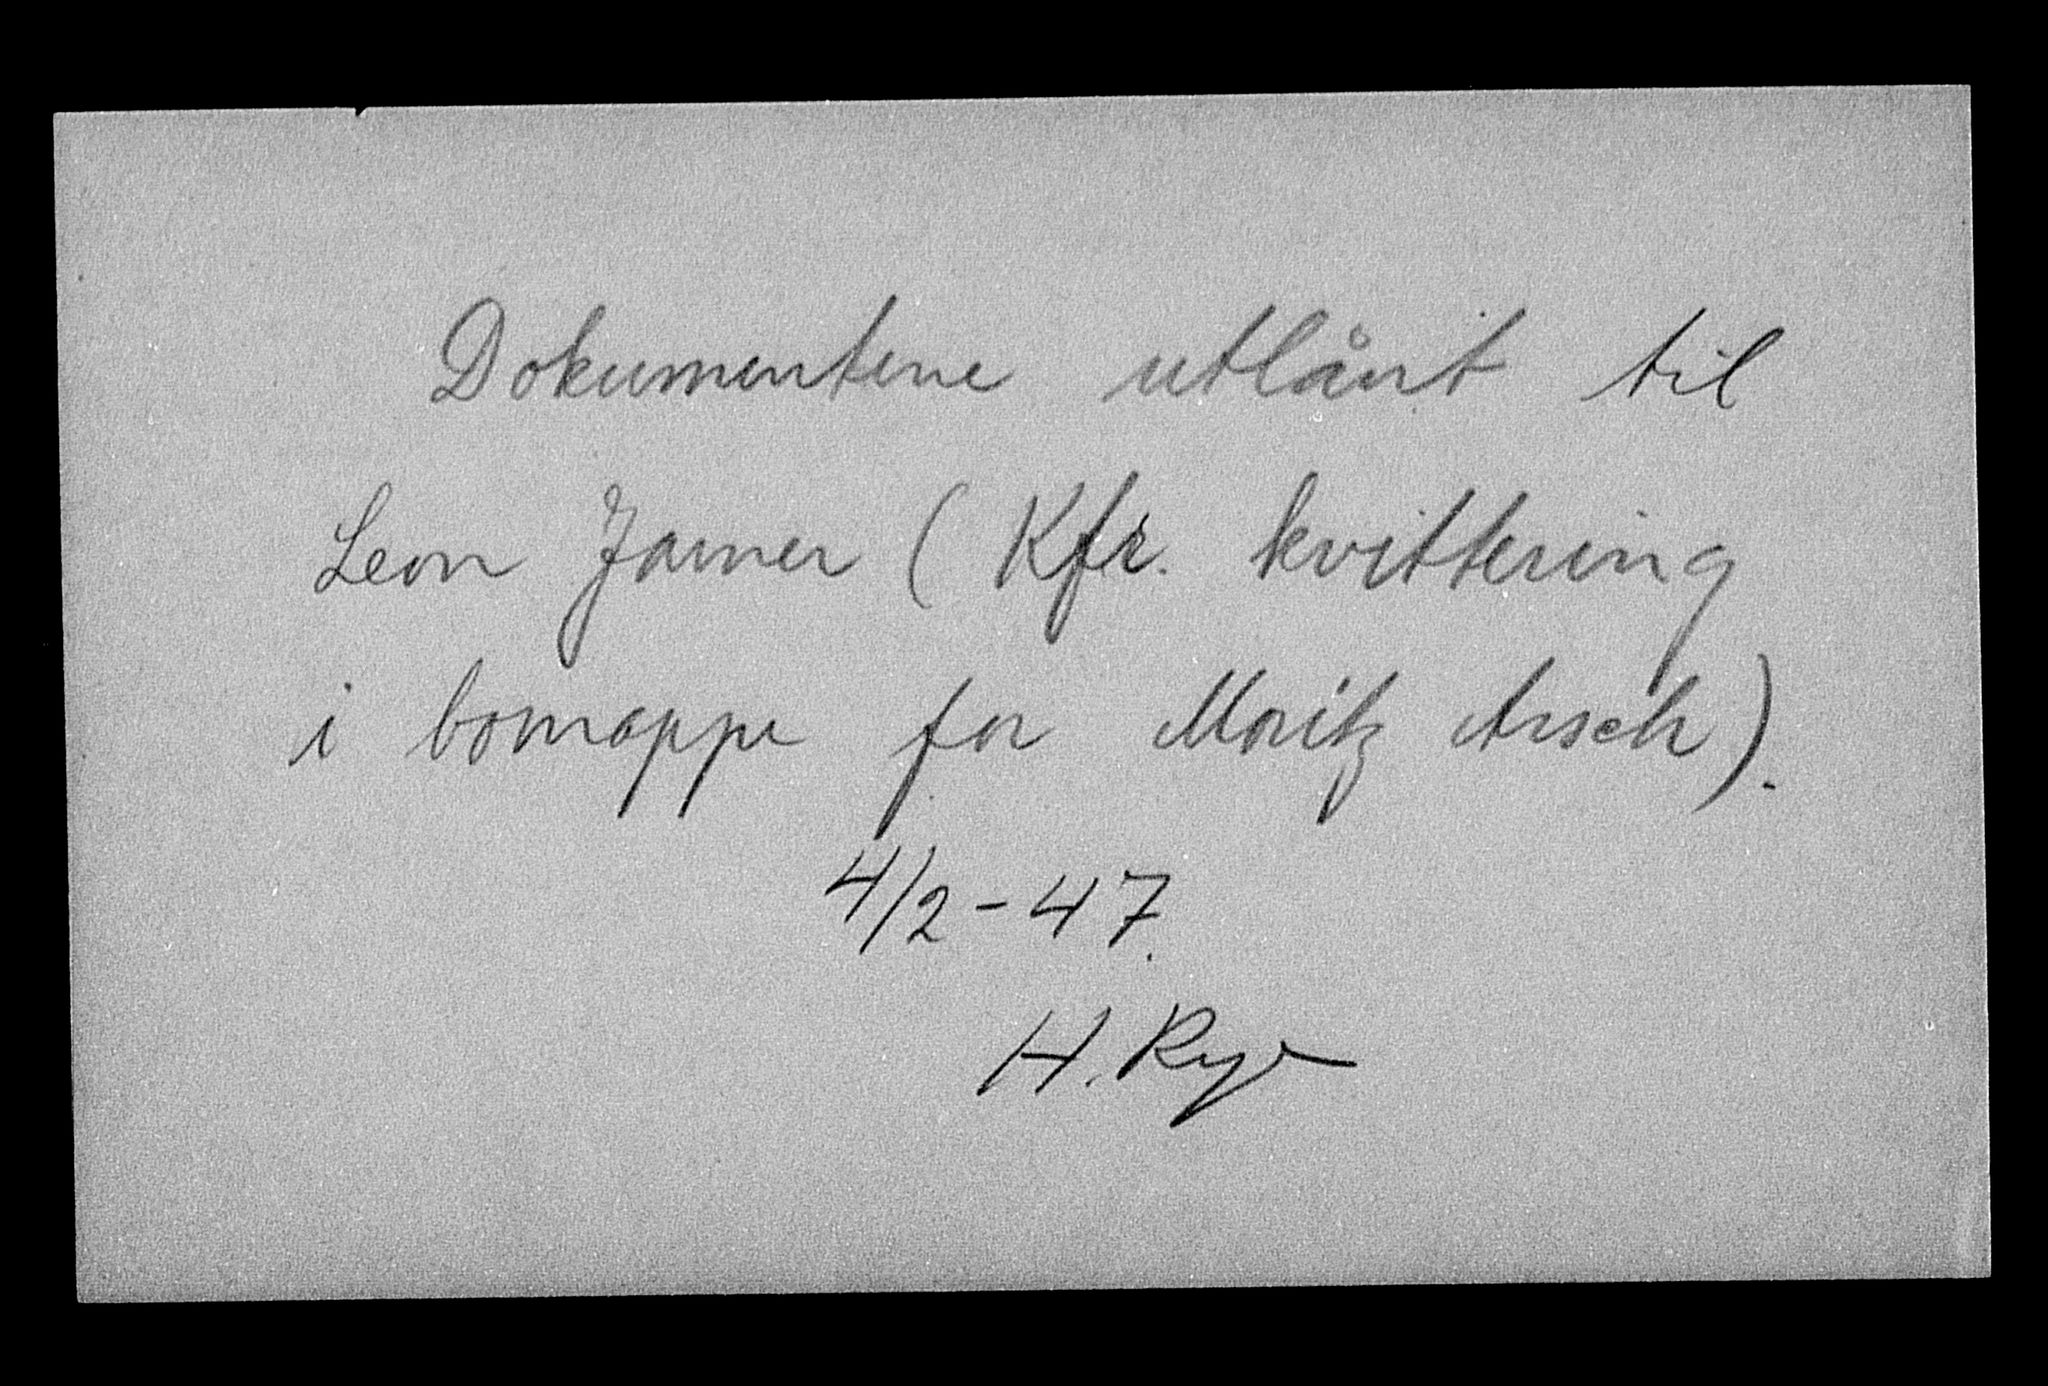 Dokumentene utlånt til
Leon Jarner (Kfr. kvittering
i bomappe for Moritz Assch).
4/2-47.
H. Rye